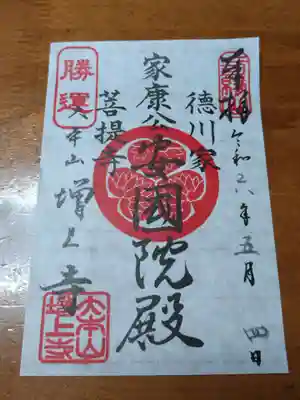 奉拝
令和六年五月四日
徳川家
家康公安國院殿
菩提寺
勝運
大本山
増上寺
大本山
増上寺